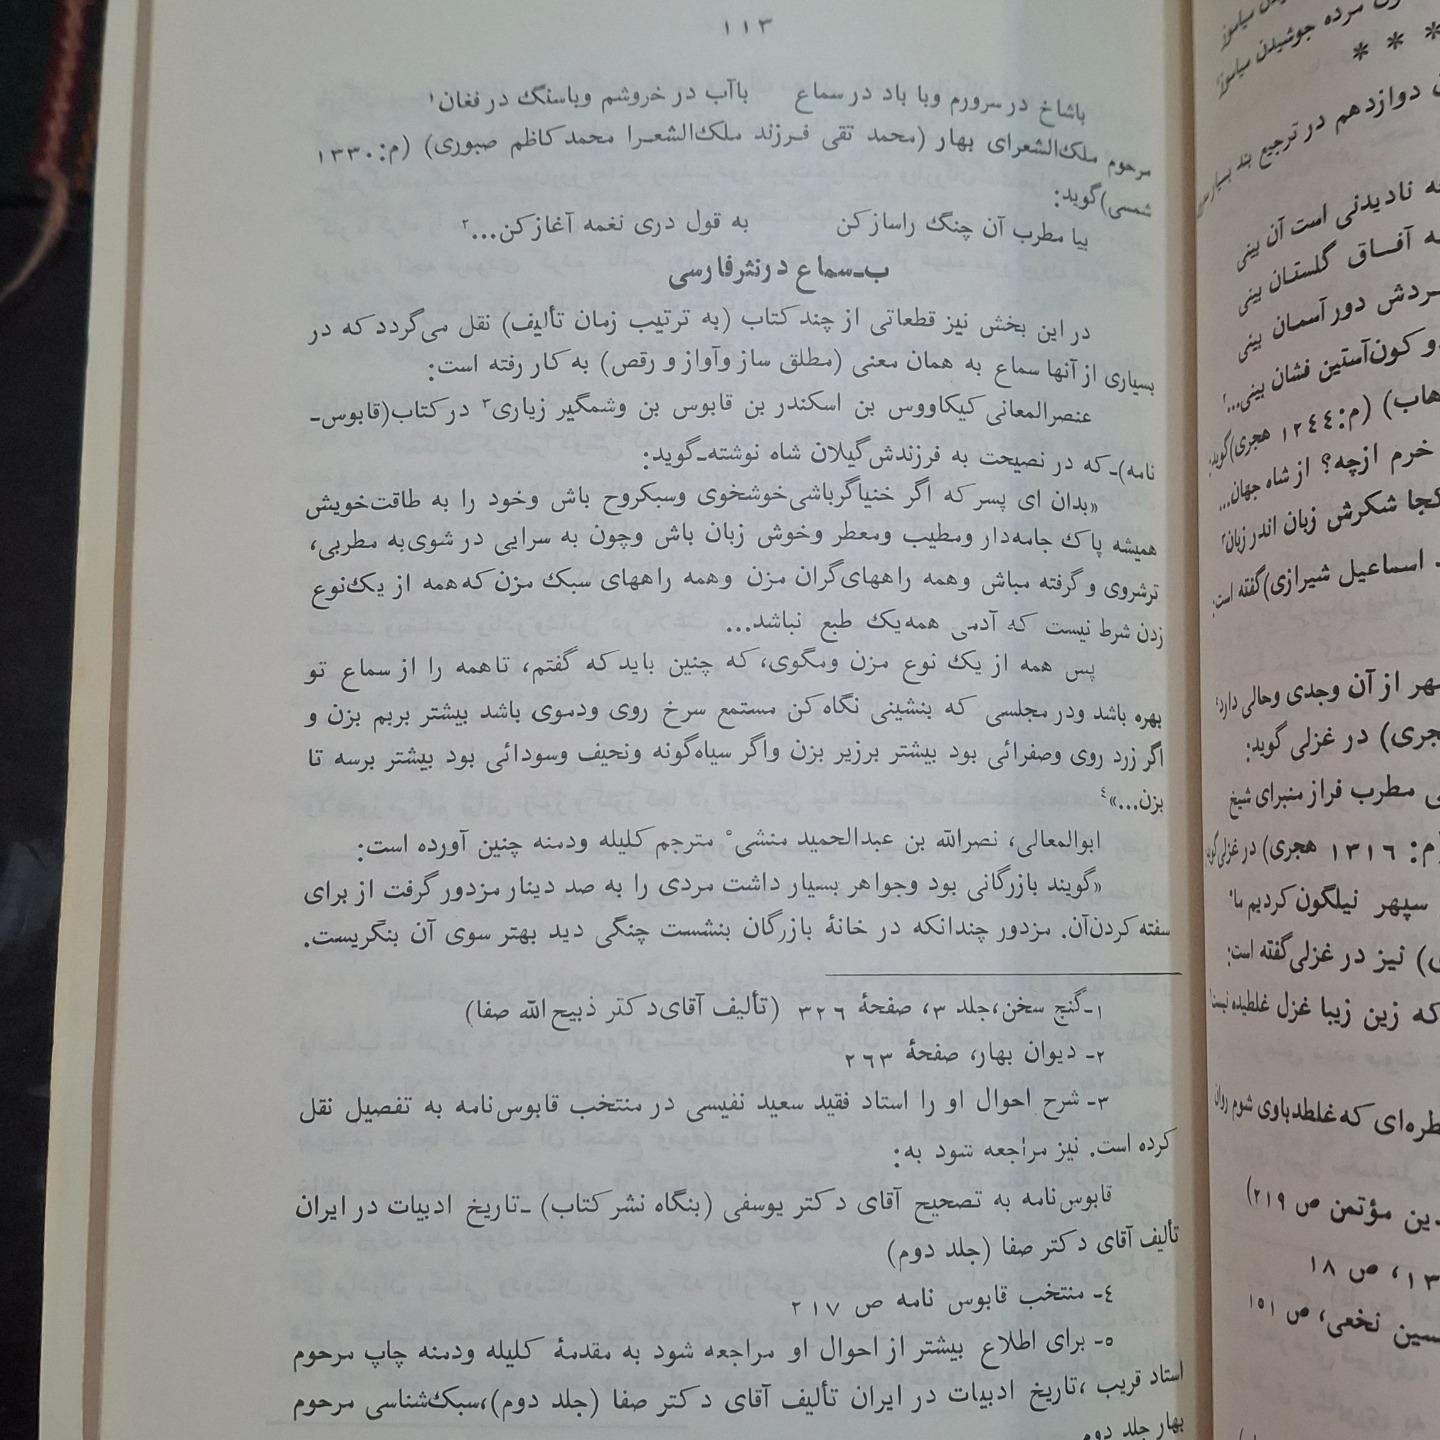 ۱۱۳
باشاخ در سرورم وبا باد در سماع باآب در خروشم وباسنگ در فغان۱
مرحوم ملك‌الشعرای بهار (محمد تقی فرزند ملك‌الشعرا محمدکاظم صبوری) (م:۱۳۳۰
شمسی)گوید:
بیا مطرب آن چنگ راسازکن به قول دری نغمه آغازکن...۲
ب‌ـ‌سماع درنثرفارسی
در این بخش نیز قطعاتی از چندکتاب (به ترتیب زمان تألیف) نقل می‌گردد که در
بسیاری از آنها سماع به همان معنی (مطلق ساز وآواز و رقص) به کار رفته است:
عنصرالمعانی کیکاووس بن اسکندر بن قابوس بن وشمگیر زیاری۳ در کتاب(قابوس‌ـ
نامه)ـ‌که در نصیحت به فرزندش‌گیلان شاه نوشته‌ـ‌گوید:
«بدان ای پسرکه اگر خنیاگرباشی‌خوشخوی وسبکروح باش وخود را به طاقت‌خویش
همیشه پاك جامه‌دار ومطیب ومعطر وخوش زبان باش وچون به سرایی در شوی‌به مطربی،
ترشروی و گرفته مباش وهمه راههای‌گران مزن وهمه راههای سبك مزن که‌همه از یك‌نوع
زدن شرط نیست که آدمی همه‌یك طبع نباشد...
پس همه از یك نوع مزن ومگوی، که چنین بایدکه گفتم، تاهمه را از سماع تو
بهره باشد ودر مجلسی که بنشینی نگاه‌کن مستمع سرخ روی ودموی باشد بیشتر بربم بزن و
اگر زرد روی وصفرائی بود بیشتر برزیر بزن واگر سیاه‌گونه ونحیف وسودائی بود بیشتر برسه تا
بزن...»۴
ابوالمعالی، نصرالله بن عبدالحمید منشی۵ مترجم کلیله ودمنه چنین آورده است:
«گویند بازرگانی بود وجواهر بسیار داشت مردی را به صد دینار مزدور گرفت از برای
سفته کردن‌آن. مزدور چندانکه در خانهٔ بازرگان بنشست چنگی دید بهتر سوی آن بنگریست.
۱ـ‌گنج سخن،جلد ۳، صفحهٔ ۳۲۶ (تألیف آقای‌دکتر ذبیح‌الله صفا)
۲ـ دیوان بهار، صفحهٔ ۲۶۳
۳ـ شرح احوال او را استاد فقید سعید نفیسی در منتخب قابوس‌نامه به تفصیل نقل
کرده است. نیز مراجعه شود به:
قابوس‌نامه به تصحیح آقای دکتر یوسفی (بنگاه نشرکتاب) ـ‌تاریخ ادبیات در ایران
تألیف آقای دکتر صفا (جلد دوم)
٤ـ منتخب قابوس نامه ص ۲۱۷
۵ـ برای اطلاع بیشتر از احوال او مراجعه شود به مقدمهٔ کلیله ودمنه چاپ مرحوم
استاد قریب ،تاریخ ادبیات در ایران تألیف آقای دکتر صفا (جلد دوم)،سبك‌شناسی مرحوم
بهار جلد دوم
مرده جوشیدن میاموز
* * *
دوازدهم در ترجیع بند بسیار
نادیدنی است آن بینی
آفاق گلستان بینی
گردش دورآسمان بینی
کون‌آستین فشان بینی...۲
(م:۱۲٤٤ هجری)گوید:
خرم ازچه؟ از شاه جهان...
کجا شکرش زبان اندر زبان۳
اسماعیل شیرازی)گفته است:
از آن وجدی وحالی دارد٤
در غزلی گوید:
مطرب فراز منبرای شیخ
م: ۱۳۱۶ هجری) در غزلی‌گوید:
سپهر نیلگون کردیم ما۵
نیز در غزلی‌گفته است:
که زین زیبا غزل غلطیده نیست
که‌غلطدباوی شوم روان
مؤتمن ص ۲۱۹)
ص ۱۸
نخعی، ص ۱۵۱